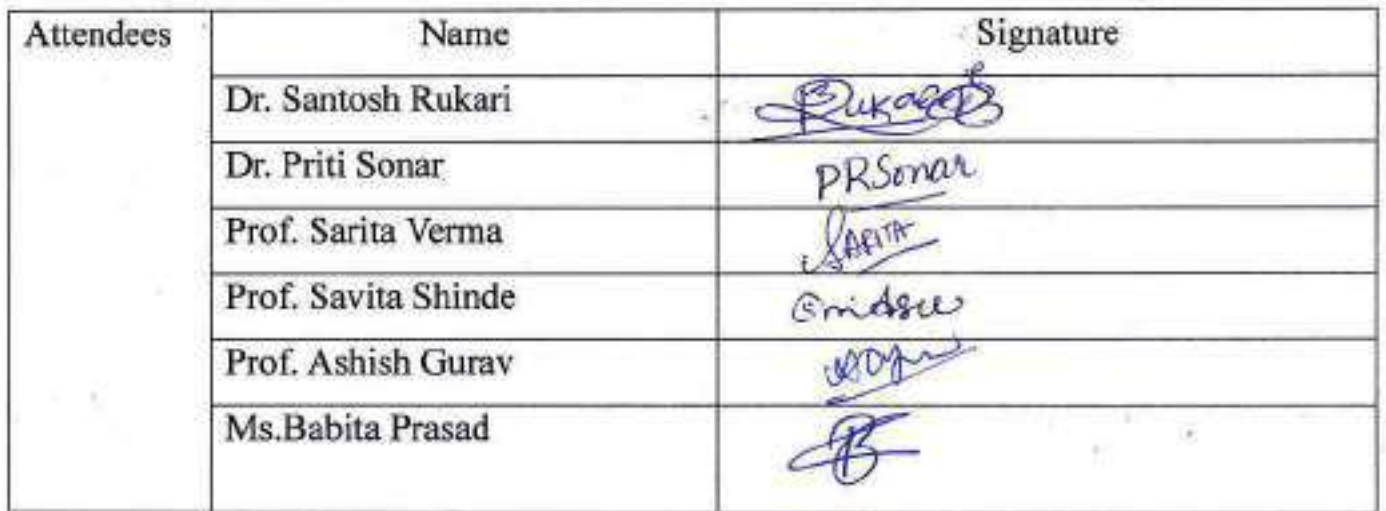 Attendees Name Signature
Dr. Santosh Rukari
Dr. Priti Sonar PRSonar
Prof. Sarita Verma SARITA
Prof. Savita Shinde
Prof. Ashish Gurav
Ms.Babita Prasad